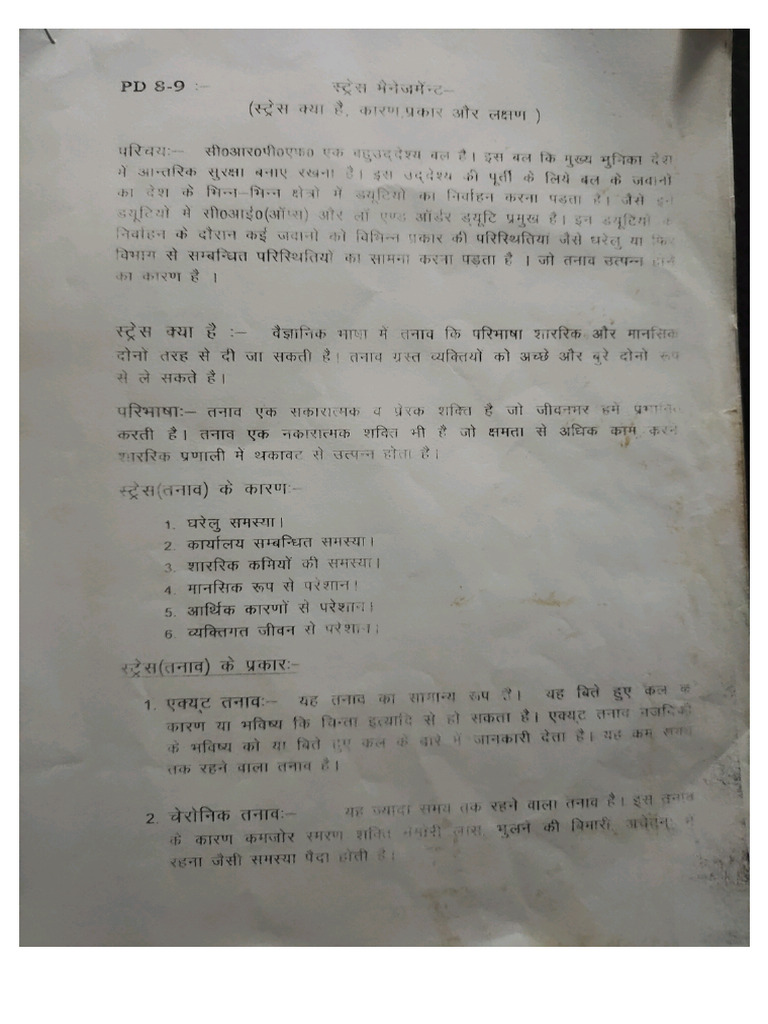 PD 8-9 :- स्ट्रेस मैनेजमेंन्ट-
(स्ट्रेस क्या है, कारण,प्रकार और लक्षण )
परिचयः- सी0आर0पी0एफ0 एक बहुउद्देश्य बल है। इस बल कि मुख्य भुनिका देश
में आन्तरिक सुरक्षा बनाए रखना है। इस उद्देश्य की पूर्ती के लिये बल के जवानो
का देश के भिन्न-भिन्न क्षेत्रो में डयूटियों का निर्वाहन करना पड़ता है। जैसे इन
डयूटियों में सी0आई0(ऑप्स) और लॉ एण्ड ऑर्डर ड्यूटि प्रमुख है। इन डयूटियों के
निर्वाहन के दौरान कई जवानो को विभिन्न प्रकार की परिस्थितियां जैसे घरेलु या फिर
विभाग से सम्बन्धित परिस्थितियों का सामना करना पड़ता है । जो तनाव उत्पन्न होने
का कारण है ।
स्ट्रेस क्या है :- वैज्ञानिक भाषा में तनाव कि परिभाषा शाररिक और मानसिक
दोनो तरह से दी जा सकती है। तनाव ग्रस्त व्यक्तियों को अच्छे और बुरे दोनो रूप
से ले सकते है।
परिभाषाः- तनाव एक सकारात्मक व प्रेरक शक्ति है जो जीवनभर हमें प्रभावित
करती है। तनाव एक नकारात्मक शक्ति भी है जो क्षमता से अधिक काम करन
शाररिक प्रणाली मे थकावट से उत्पन्न होता है।
स्ट्रेस(तनाव) के कारणः-
1. घरेलु समस्या।
2. कार्यालय सम्बन्धित समस्या।
3. शाररिक कमियों की समस्या।
4. मानसिक रूप से परेशान।
5. आर्थिक कारणों से परेशान।
6. व्यक्तिगत जीवन से परेशान।
स्ट्रेस(तनाव) के प्रकारः-
1. एक्यूट तनावः- यह तनाव का सामान्य रूप है। यह बिते हुए कल के
कारण या भविष्य कि चिन्ता इत्यादि से हो सकता है। एक्यूट तनाव नजदिकी
के भविष्य को या बिते हुए कल के बारे में जानकारी देता है। यह कम समय
तक रहने वाला तनाव है।
2. चेरोनिक तनावः- यह ज्यादा समय तक रहने वाला तनाव है। इस तनाव
के कारण कमजोर स्मरण शक्ति भुलने की बिमारी, में
रहना जैसी समस्या पैदा होती है।